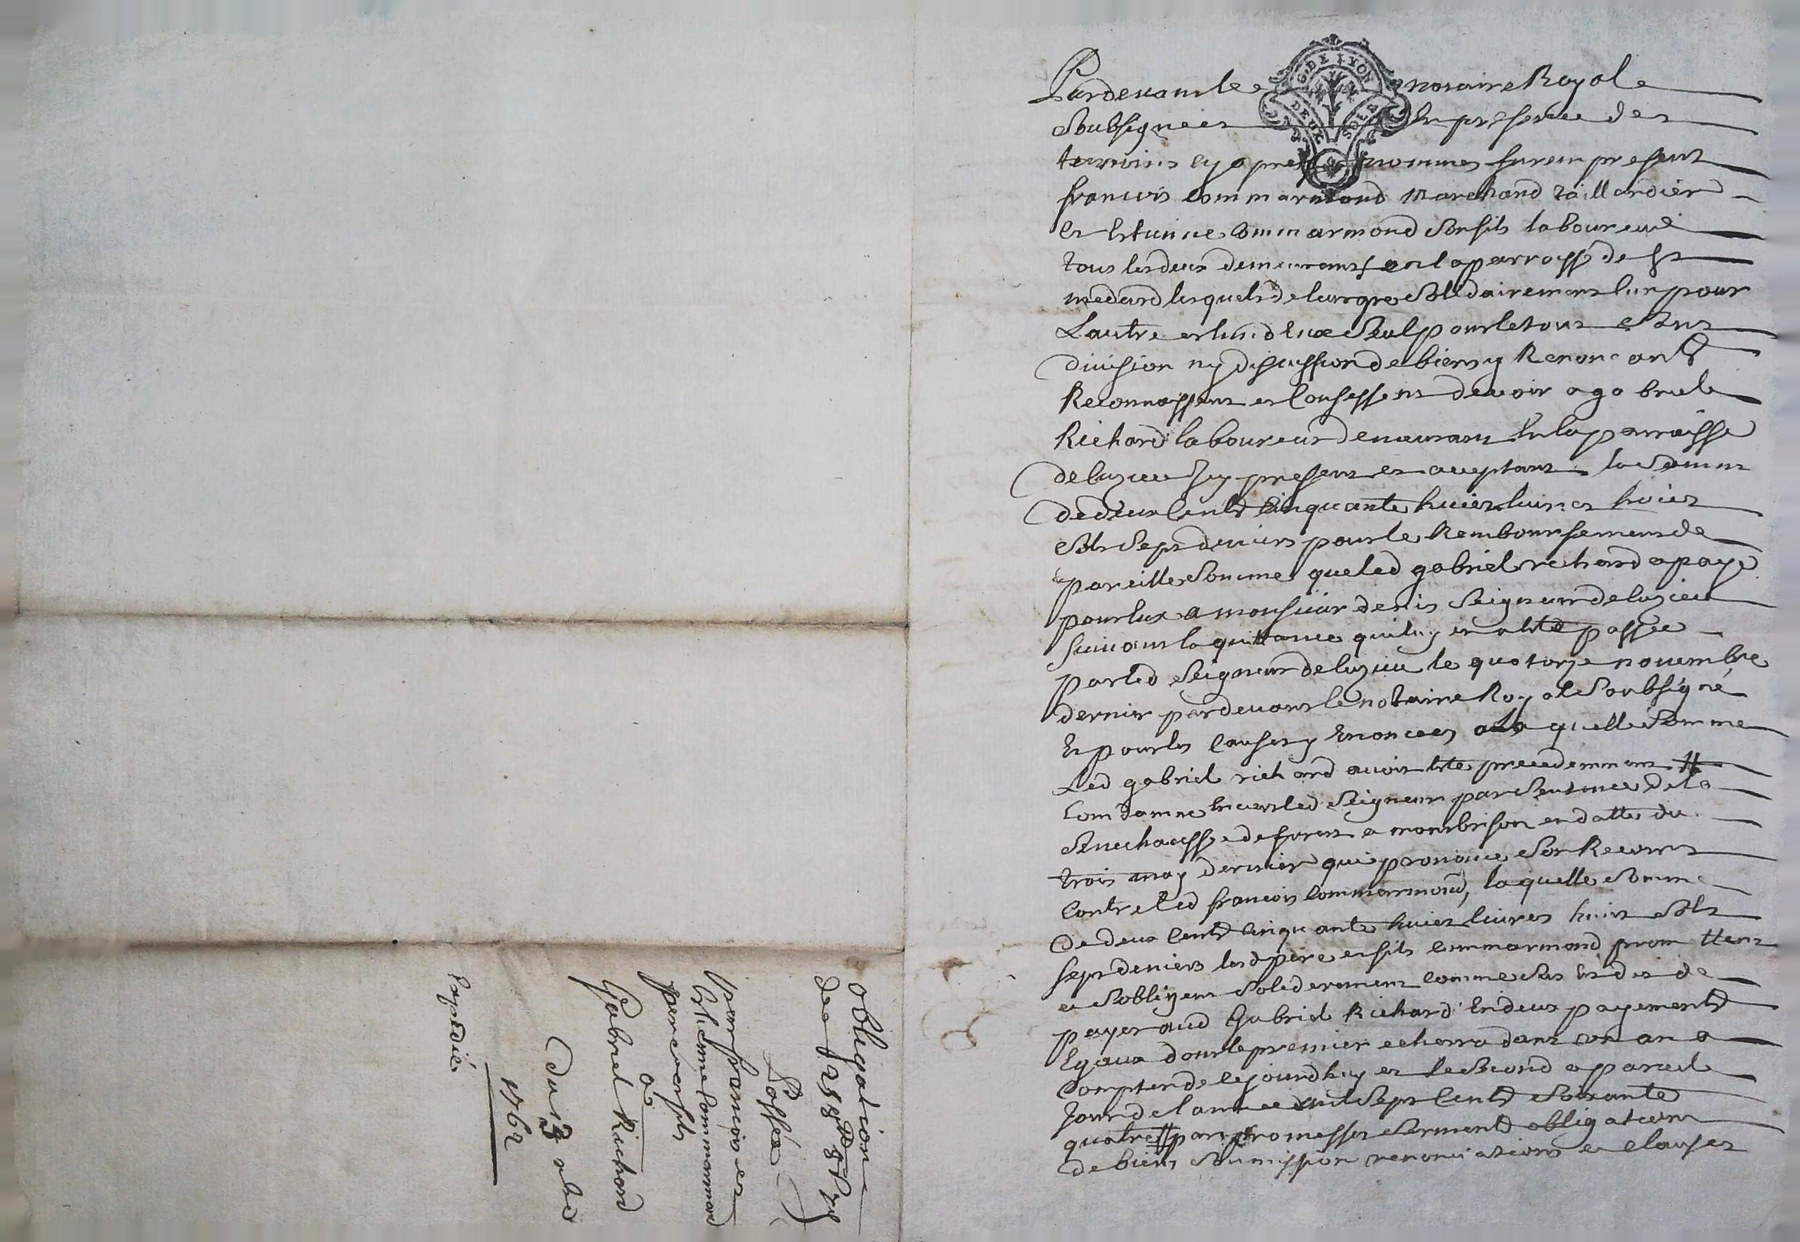 G. DE LYON
DEUX SOLS
Pardevant le notaire Royal
Soubsigne et En presence des
temoins cy apres nommes furent present
francois Commarmond Marchand taillandier
et Estienne Commarmond Son fils laboureur
tous les deux demeurants en la parroisse de St
medard lesquels de leur gre Solidairement lun pour
Lautre et lun deux Seul pour le tout Sans
division ny discussion de biens y Renoncant
Reconnoissent et Confessent devoir a gabriel
Richard laboureur demeurant En la parroisse
de luzieu Icy present et acceptant la Somme
de deux Cents Cinquante huict livres huict
Sols Sept deniers pour le Remboursement de
pareille Somme que led gabriel richard a payé
pour lux a monsieur denis Seigneur de luzieu
Suivant la quittance quil luy en a Eté passée
par led Seigneur de luzieu le quatorze novembre
dernier pardevant le notaire Royal Soubsigné
Et pour les Causes y Enoncees a la quelle Somme
Led gabriel richard avoit Eté precedemment
Condamne Envers led Seigneur par Sentence de la
Senechaussée de forest a montbrison en datte du
trois may dernier qui prononce Son Recours
Contre led francois Commarmond, la quelle Somme
de deux Cents Cinquante huict livres huict Sols
Sept deniers lesd pere et fils Commarmond promettent
et Sobligent Soliderement comme Sus Est dit de
payer aud Gabriel Richard En deux payements
Egaux dont le premier echerra dans un an a
Compter de Cejourdhuy et le Second a pareil
Jour de lannée mil Sept Cents Soixante
quatre par promesses Serments obligations
de biens Soumissions renonciations et clauses
obligation
de 258
Passée
par francois et
Estienne Commarmond
pere et fils
a
Gabriel Richard
Du 3
1762
Expedié